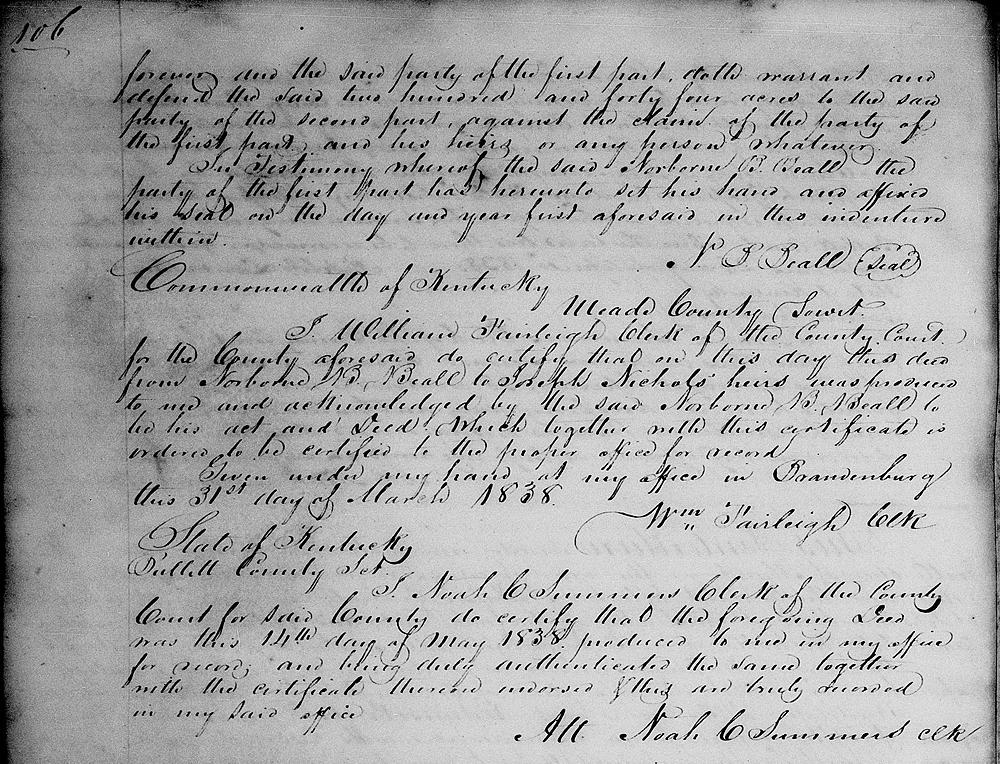 106
forever and the said party of the first part, doth warrant and
defend the said two hundred and forty four acres to the said
party of the second part, against the claim of the party of
the first part and his heirs or any person whatever.
In Testimony whereof the said Norborne B. Beall the
party of the first part has hereunto set his hand and affixed
his seal on the day and year first aforesaid in this indenture
written.
N B Beall (Seal)
Commonwealth of Kentucky
Meade County Sowit.
I. William Fairleigh Clerk of the County Court
for the County aforesaid do certify that on this day this deed
from Norborne B. Beall to Joseph Nichols' heirs was produced
to me and acknowledged by the said Norborne B. Beall to
be his act and Deed. Which together with this certificate is
ordered to be certified to the proper office for record
Given under my hand at my office in Brandenburg
this 31st day of March 1838.
Wm Fairleigh Clk
State of Kentucky
Bullitt County Sct.
I. Noah C Summers Clerk of the County
Court for said County do certify that the foregoing Deed
was this 14th day of May 1838. produced to me in my office
for record; and being duly authenticated the same together
with the certificate thereon endorsed & this are truly recorded
in my said office
Att. Noah C Summers clk